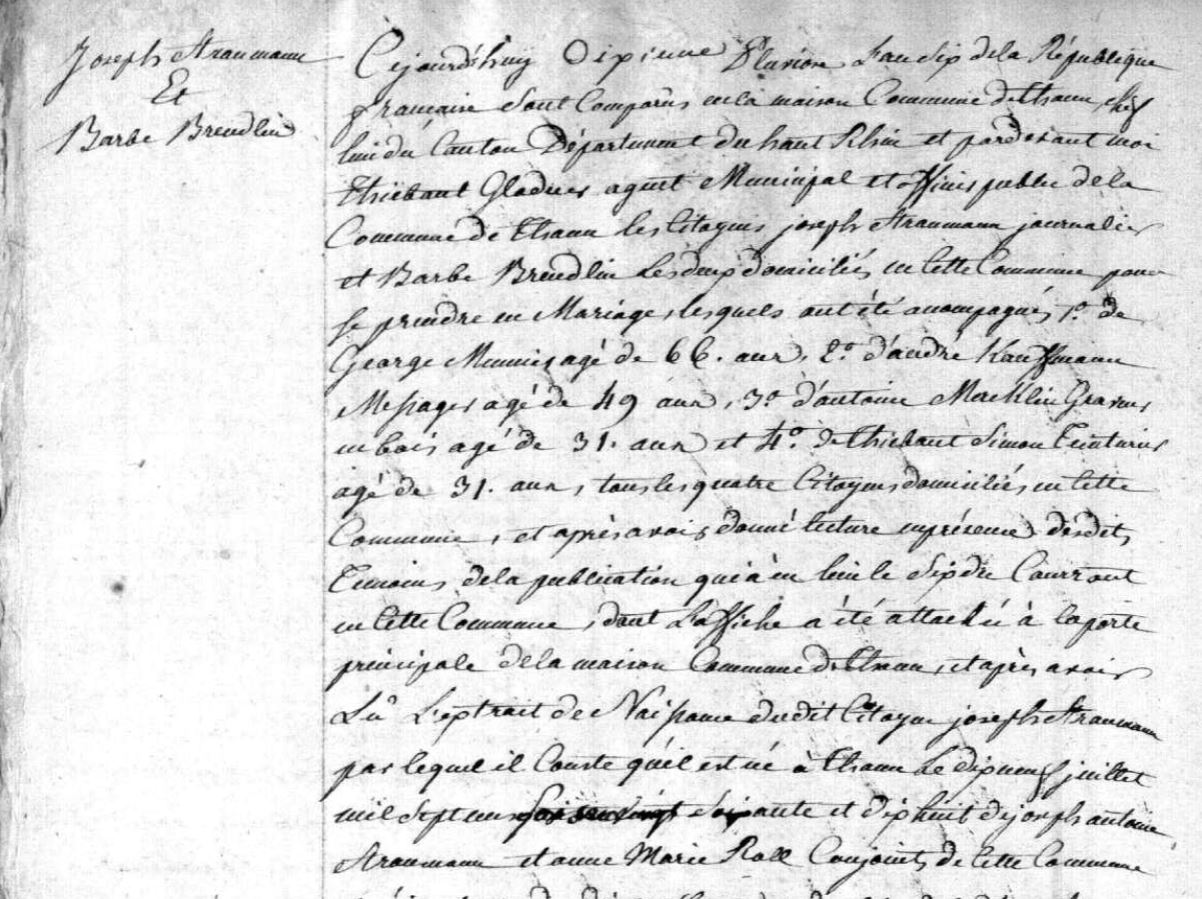 Joseph Straumann
Et
Barbe Brendlin
Cejourd'huy Dixieme Pluviose L'an Six de la République
francaise Sont Comparûs en la maison Commune de thann chef
lieu du Canton Département du haut Rhin et pardevant moi
thiebaut Gladner agent Municipal et officier public de la
Commune de thann les Citoyens joseph Straumann journalier
et Barbe Brendlin Les deux domiciliés en Cette Commune pour
se prendre en Mariage, lesquels ont été accompagnés 1.° de
George Munier agé de 66. ans, 2.° d'andré Kauffmann
Messager agé de 49 ans, 3.° d'antoine Mercklin Graveur
en bois agé de 31. ans et 4.° de thiebaut Simon Teinturier
agé de 31. ans, tous les quatre Citoyens domiciliés en Cette
Commune, et après avoir donné lecture en présence desdits
Temoins de la publication qui a eu lieu le Six du Courrant
en Cette Commune, dont L'affiche a été attachée à la porte
principale de la maison Commune de thann, et après avoir
Lu L'extrait de Naissance dudit Citoyen joseph Straumann
par lequel il Conste qu'il est né à thann Le dix neuf juillet
mil Sept cens Soixante et dix huit de joseph antoine
Straumann et anne Marie Roll Conjoints de Cette Commune